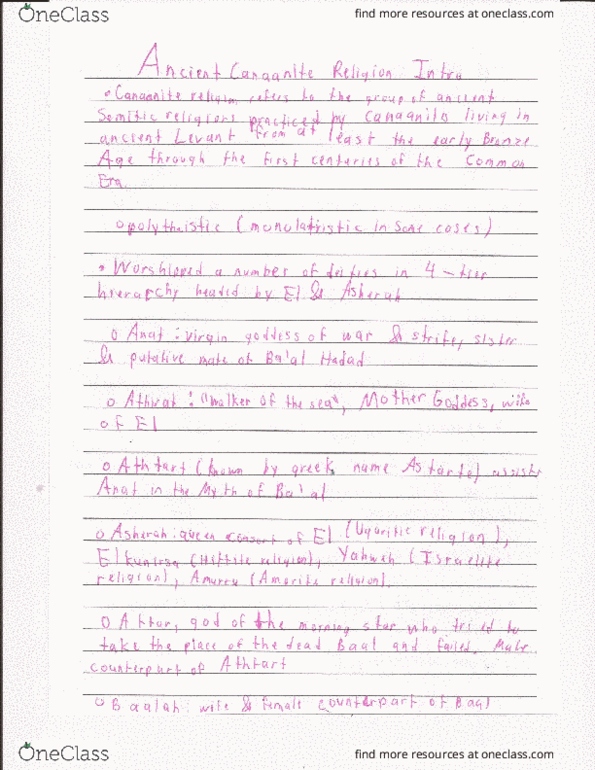 OneClass
find more resources at oneclass.com
Ancient Canaanite Religion Intro
• Canaanite religion refers to the group of ancient
Semitic religions practiced by Canaanits living in
ancient Levant from at least the early Bronze
Age through the first centuries of the Common
Era
o polytheistic (monolatristic in some cases)
• Worshipped a number of deities in 4-tier
hierarchy headed by El & Asherah
o Anat: virgin goddess of war & strife, sister
& putative mate of Ba'al Hadad
o Athirat: "walker of the sea", Mother Goddess, wife
of El
o Athtart (known by greek name Astarte) assists
Anat in the Myth of Ba'al
o Asherah: queen consort of El (Ugaritic religion),
Elkunirsa (Hittite religion), Yahweh (Israelite
religion), Amurru (Amorite religion).
o Attar, god of the morning star who tried to
take the place of the dead Baal and failed. Male
counterpart of Athtart
o Baalah: wife & female counterpart of Baal
OneClass
find more resources at oneclass.com